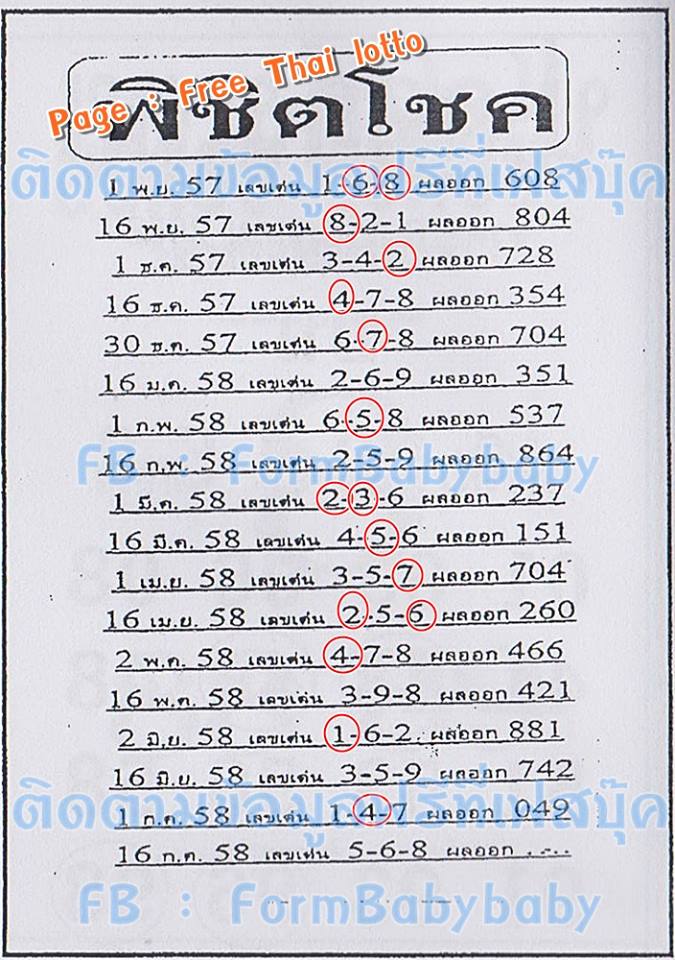 Page : Free Thai lotto
พิชิตโชค
ติดตามข้อมูลฟรีที่เฟสบุ๊ค
1 พ.ย. 57 เลขเด่น 1-6-8 ผลออก 608
16 พ.ย. 57 เลขเด่น 8-2-1 ผลออก 804
1 ธ.ค. 57 เลขเด่น 3-4-2 ผลออก 728
16 ธ.ค. 57 เลขเด่น 4-7-8 ผลออก 354
30 ธ.ค. 57 เลขเด่น 6-7-8 ผลออก 704
16 ม.ค. 58 เลขเด่น 2-6-9 ผลออก 351
1 ก.พ. 58 เลขเด่น 6-5-8 ผลออก 537
FB : FormBabybaby
16 ก.พ. 58 เลขเด่น 2-5-9 ผลออก 864
1 มี.ค. 58 เลขเด่น 2-3-6 ผลออก 237
16 มี.ค. 58 เลขเด่น 4-5-6 ผลออก 151
1 เม.ย. 58 เลขเด่น 3-5-7 ผลออก 704
16 เม.ย. 58 เลขเด่น 2-5-6 ผลออก 260
2 พ.ค. 58 เลขเด่น 4-7-8 ผลออก 466
16 พ.ค. 58 เลขเด่น 3-9-8 ผลออก 421
2 มิ.ย. 58 เลขเด่น 1-6-2 ผลออก 881
16 มิ.ย. 58 เลขเด่น 3-5-9 ผลออก 742
ติดตามข้อมูลฟรีที่เฟสบุ๊ค
1 ก.ค. 58 เลขเด่น 1-4-7 ผลออก 049
16 ก.ค. 58 เลขเด่น 5-6-8 ผลออก ....
FB : FormBabybaby